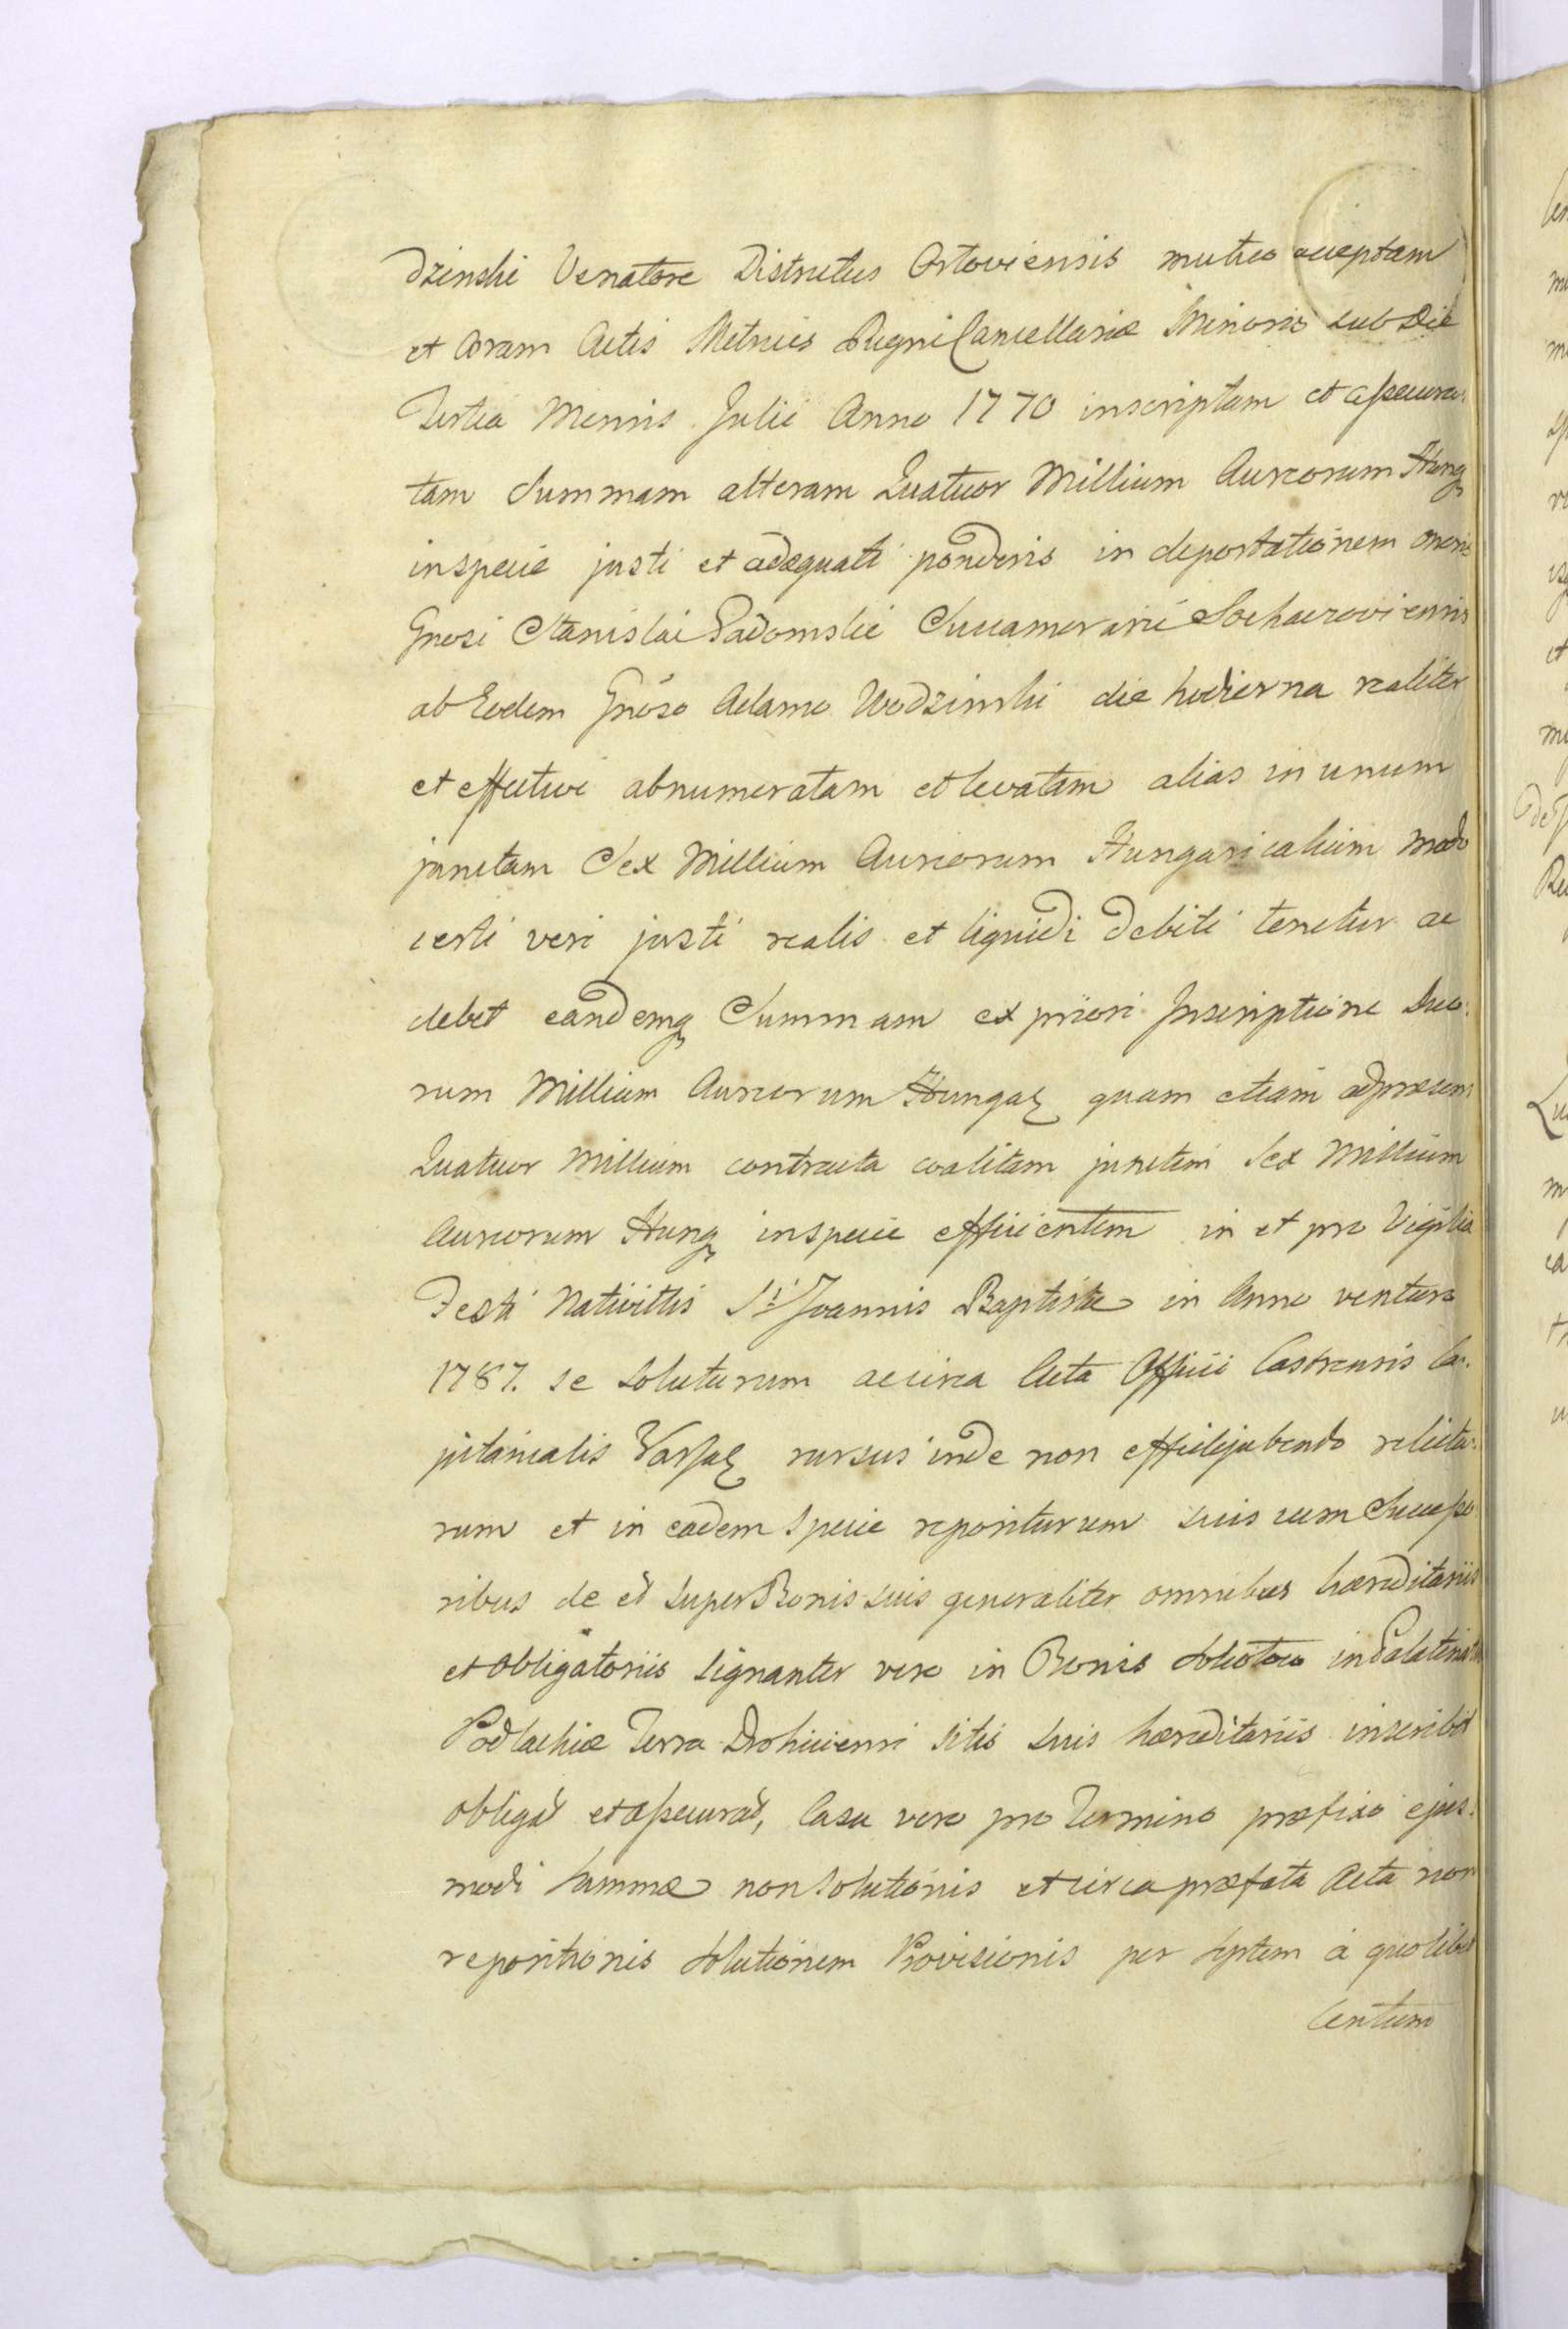 dzinski Venatore Districtus Ostoviensis mutuo acceptam
et Coram Actis Metrices Regni Cancellariæ Minoris sub Die
Tertia Mensis Julii Anno 1770 inscriptam et assecura-
tam Summam alteram Quatuor Millium Aureorum Hung
in specie justi et adæquati ponderis in deportationem oneris
Gnosi Stanislai Radomski Succamerarii Sochaczoviensis
ab Eodem Gnoso Adamo Wodzinski die hodierna realiter
et effective abnumeratam et levatam alias in unum
junctam Sex Millium Aureorum Hungaricalium modo
certi veri justi realis et liquidi Debiti tenetur ac
debet eandemq Summam ex priori Inscriptione Duo-
rum Millium Aureorum Hungaz quam etiam adpræsens
Quatuor Millium contracta coalitam junctim Sex Millium
Aureorum Hung in specie efficientem in et pro Vigilia
Festi Nativittis Sti Joannis Baptistæ in Anno venturo
1787. se soluturum ac circa Acta Officii Castrensis Ca-
pitanealis Varsaz rursus inde non efficijubendo relictu-
rum et in eadem specie repositurum suis cum Successo-
ribus de et super Bonis suis generaliter omnibus hæreditariis
et obligatoriis signanter vero in Bonis in Palatinatu
Podlachiæ Terra Drohiciensi sitis suis hæreditariis inscribit
obligat et assecurat, Casu vero pro Termino præfixo ejus-
modi Summæ non solutionis et circa præfata Acta non
repositionis solutionem Provisionis per Septem à quolibet
Centum